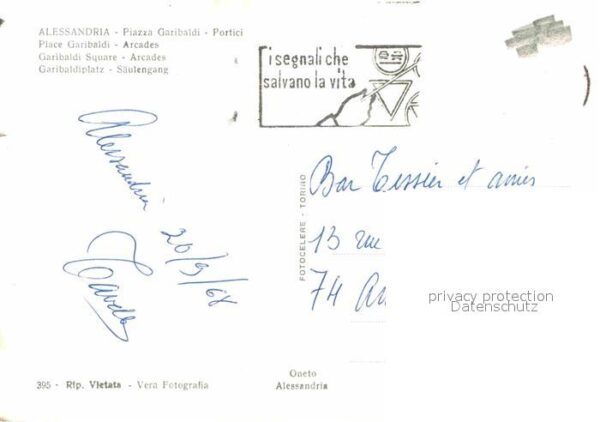 ALESSANDRIA - Piazza Garibaldi - Portici
Place Garibaldi - Arcades
Garibaldi Square - Arcades
Garibaldiplatz - Säulengang
i segnali che
salvano la vita
Alessandria
20/9/68
FOTOCELERE - TORINO
Bar Tessier et amis
13 rue
74 An
privacy protection
Datenschutz
395 - Rip. Vietata - Vera Fotografia
Oneto
Alessandria